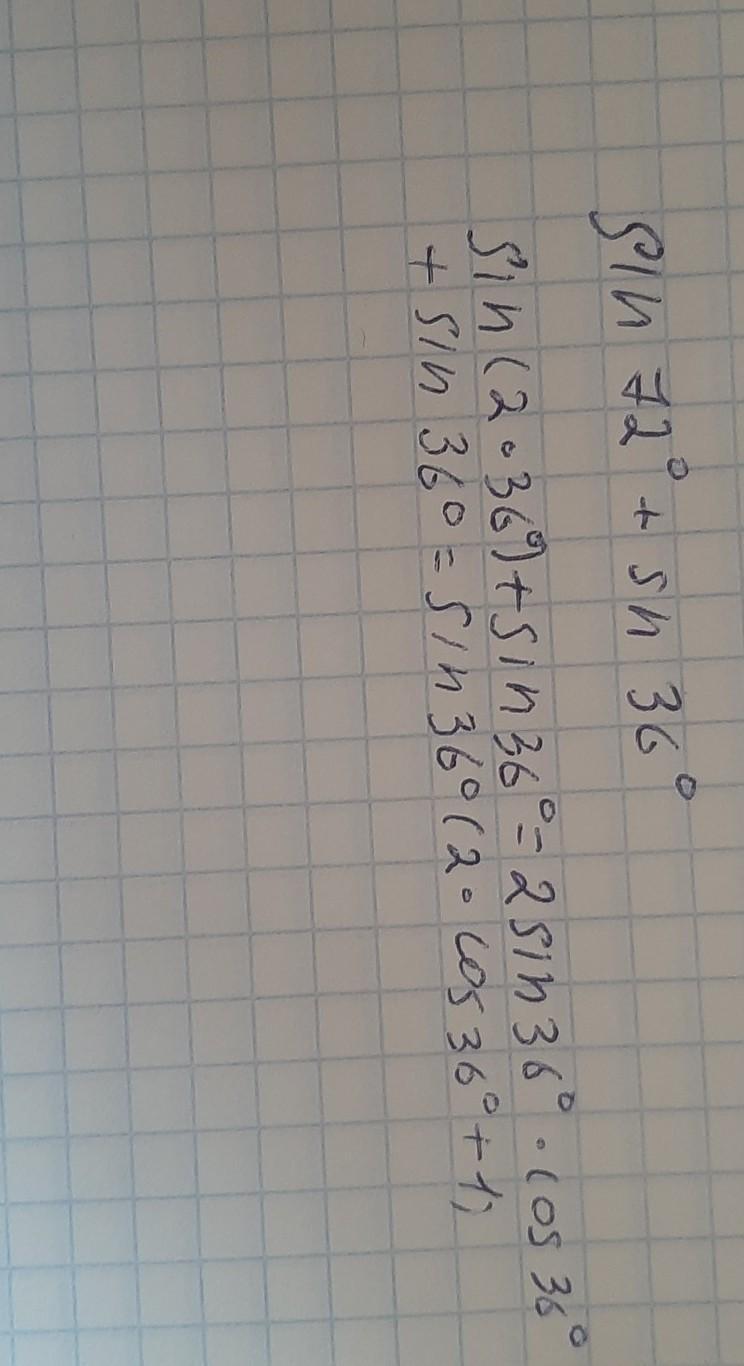 sin 72° + sn 36°
sin (2 · 36°) + sin 36° = 2 sin 36° · cos 36°
+ sin 36° = sin 36° (2 · cos 36° + 1;